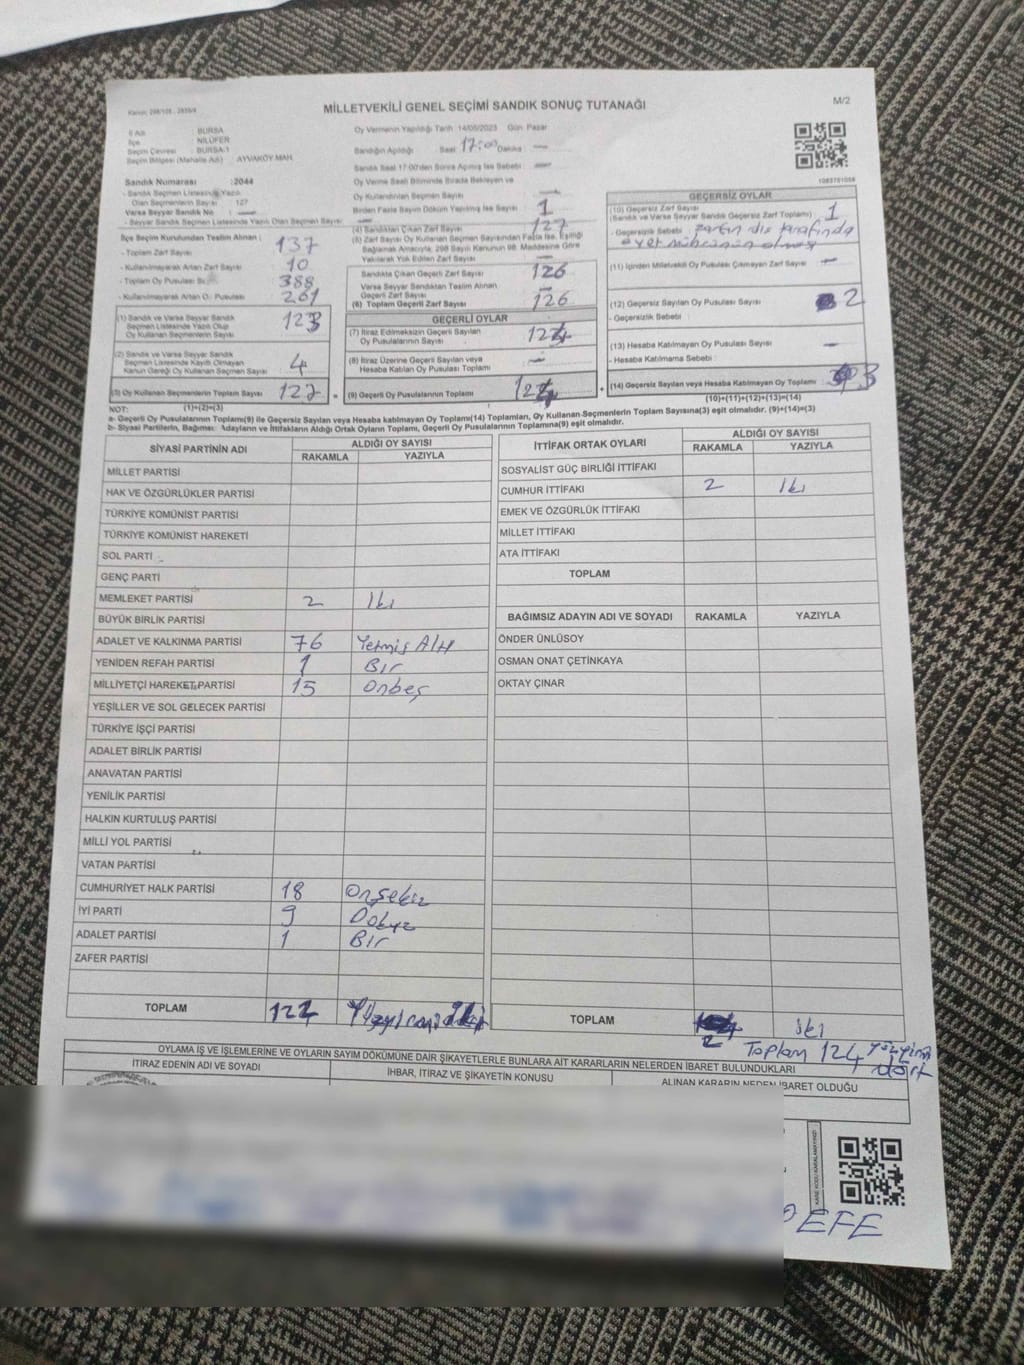 Kanun: 298/105 - 2839/4
MİLLETVEKİLİ GENEL SEÇİMİ SANDIK SONUÇ TUTANAĞI
M/2
İl Adı : BURSA
İlçe : NİLÜFER
Seçim Çevresi : BURSA-1
Seçim Bölgesi (Mahalle Adı) : AYVAKÖY MAH.
Sandık Numarası : 2044
- Sandık Seçmen Listesinde Yazılı
Olan Seçmenlerin Sayısı : 127
Varsa Seyyar Sandık No : —
- Seyyar Sandık Seçmen Listesinde Yazılı Olan Seçmen Sayısı : —
İlçe Seçim Kurulundan Teslim Alınan :
- Toplam Zarf Sayısı 137
- Kullanılmayarak Artan Zarf Sayısı 10
- Toplam Oy Pusulası 388
- Kullanılmayarak Artan Oy Pusulası 261
(1) Sandık ve Varsa Seyyar Sandık
Seçmen Listesinde Yazılı Olup
Oy Kullanan Seçmenlerin Sayısı 123
(2) Sandık ve Varsa Seyyar Sandık
Seçmen Listesinde Kayıtlı Olmayan
Kanun Gereği Oy Kullanan Seçmen Sayısı 4
(3) Oy Kullanan Seçmenlerin Toplam Sayısı 127 =
(1)+(2)=(3)
Oy Vermenin Yapıldığı Tarih 14/05/2023 Gün Pazar
Sandığın Açıldığı : Saat 17:00 Dakika —
Sandık Saat 17:00'den Sonra Açılmış İse Sebebi : —
Oy Verme Saati Bitiminde Sırada Bekleyen ve
Oy Kullandırılan Seçmen Sayısı —
Birden Fazla Sayım Döküm Yapılmış İse Sayısı 1
(4) Sandıktan Çıkan Zarf Sayısı 127
(5) Zarf Sayısı Oy Kullanan Seçmen Sayısından Fazla İse, Eşitliği
Bağlamak Amacıyla, 298 Sayılı Kanunun 98. Maddesine Göre
Yakılarak Yok Edilen Zarf Sayısı —
Sandıkta Çıkan Geçerli Zarf Sayısı 126
Varsa Seyyar Sandıktan Teslim Alınan
Geçerli Zarf Sayısı —
(6) Toplam Geçerli Zarf Sayısı 126
GEÇERLİ OYLAR
(7) İtiraz Edilmeksizin Geçerli Sayılan
Oy Pusulalarının Sayısı 124
(8) İtiraz Üzerine Geçerli Sayılan veya
Hesaba Katılan Oy Pusulası Toplamı —
(9) Geçerli Oy Pusulalarının Toplamı 124 +
1083781058
GEÇERSİZ OYLAR
(10) Geçersiz Zarf Sayısı
(Sandık ve Varsa Seyyar Sandık Geçersiz Zarf Toplamı) 1
- Geçersizlik Sebebi : zarfın dış tarafında
evet mührünün olması
(11) İçinden Milletvekili Oy Pusulası Çıkmayan Zarf Sayısı —
(12) Geçersiz Sayılan Oy Pusulası Sayısı 2
- Geçersizlik Sebebi :
(13) Hesaba Katılmayan Oy Pusulası Sayısı —
- Hesaba Katılmama Sebebi :
(14) Geçersiz Sayılan veya Hesaba Katılmayan Oy Toplamı 3
(10)+(11)+(12)+(13)=(14)
NOT:
a- Geçerli Oy Pusulalarının Toplamı(9) ile Geçersiz Sayılan veya Hesaba katılmayan Oy Toplamı(14) Toplamları, Oy Kullanan Seçmenlerin Toplam Sayısına(3) eşit olmalıdır. (9)+(14)=(3)
b- Siyasi Partilerin, Bağımsız Adayların ve İttifakların Aldığı Ortak Oyların Toplamı, Geçerli Oy Pusulalarının Toplamına(9) eşit olmalıdır.
SİYASİ PARTİNİN ADI
ALDIĞI OY SAYISI
RAKAMLA YAZIYLA
MİLLET PARTİSİ
HAK VE ÖZGÜRLÜKLER PARTİSİ
TÜRKİYE KOMÜNİST PARTİSİ
TÜRKİYE KOMÜNİST HAREKETİ
SOL PARTİ
GENÇ PARTİ
MEMLEKET PARTİSİ 2 İki
BÜYÜK BİRLİK PARTİSİ
ADALET VE KALKINMA PARTİSİ 76 Yetmiş Altı
YENİDEN REFAH PARTİSİ 1 Bir
MİLLİYETÇİ HAREKET PARTİSİ 15 Onbeş
YEŞİLLER VE SOL GELECEK PARTİSİ
TÜRKİYE İŞÇİ PARTİSİ
ADALET BİRLİK PARTİSİ
ANAVATAN PARTİSİ
YENİLİK PARTİSİ
HALKIN KURTULUŞ PARTİSİ
MİLLİ YOL PARTİSİ
VATAN PARTİSİ
CUMHURİYET HALK PARTİSİ 18 Onsekiz
İYİ PARTİ 9 Dokuz
ADALET PARTİSİ 1 Bir
ZAFER PARTİSİ
TOPLAM 122
İTTİFAK ORTAK OYLARI
ALDIĞI OY SAYISI
RAKAMLA YAZIYLA
SOSYALİST GÜÇ BİRLİĞİ İTTİFAKI
CUMHUR İTTİFAKI 2 İki
EMEK VE ÖZGÜRLÜK İTTİFAKI
MİLLET İTTİFAKI
ATA İTTİFAKI
TOPLAM
BAĞIMSIZ ADAYIN ADI VE SOYADI RAKAMLA YAZIYLA
ÖNDER ÜNLÜSOY
OSMAN ONAT ÇETİNKAYA
OKTAY ÇINAR
TOPLAM 2 iki
Toplam 124 yüzyirmi
dört
OYLAMA İŞ VE İŞLEMLERİNE VE OYLARIN SAYIM DÖKÜMÜNE DAİR ŞİKAYETLERLE BUNLARA AİT KARARLARIN NELERDEN İBARET BULUNDUKLARI
İTİRAZ EDENİN ADI VE SOYADI
İHBAR, İTİRAZ VE ŞİKAYETİN KONUSU
ALINAN KARARIN NEDEN İBARET OLDUĞU
EFE